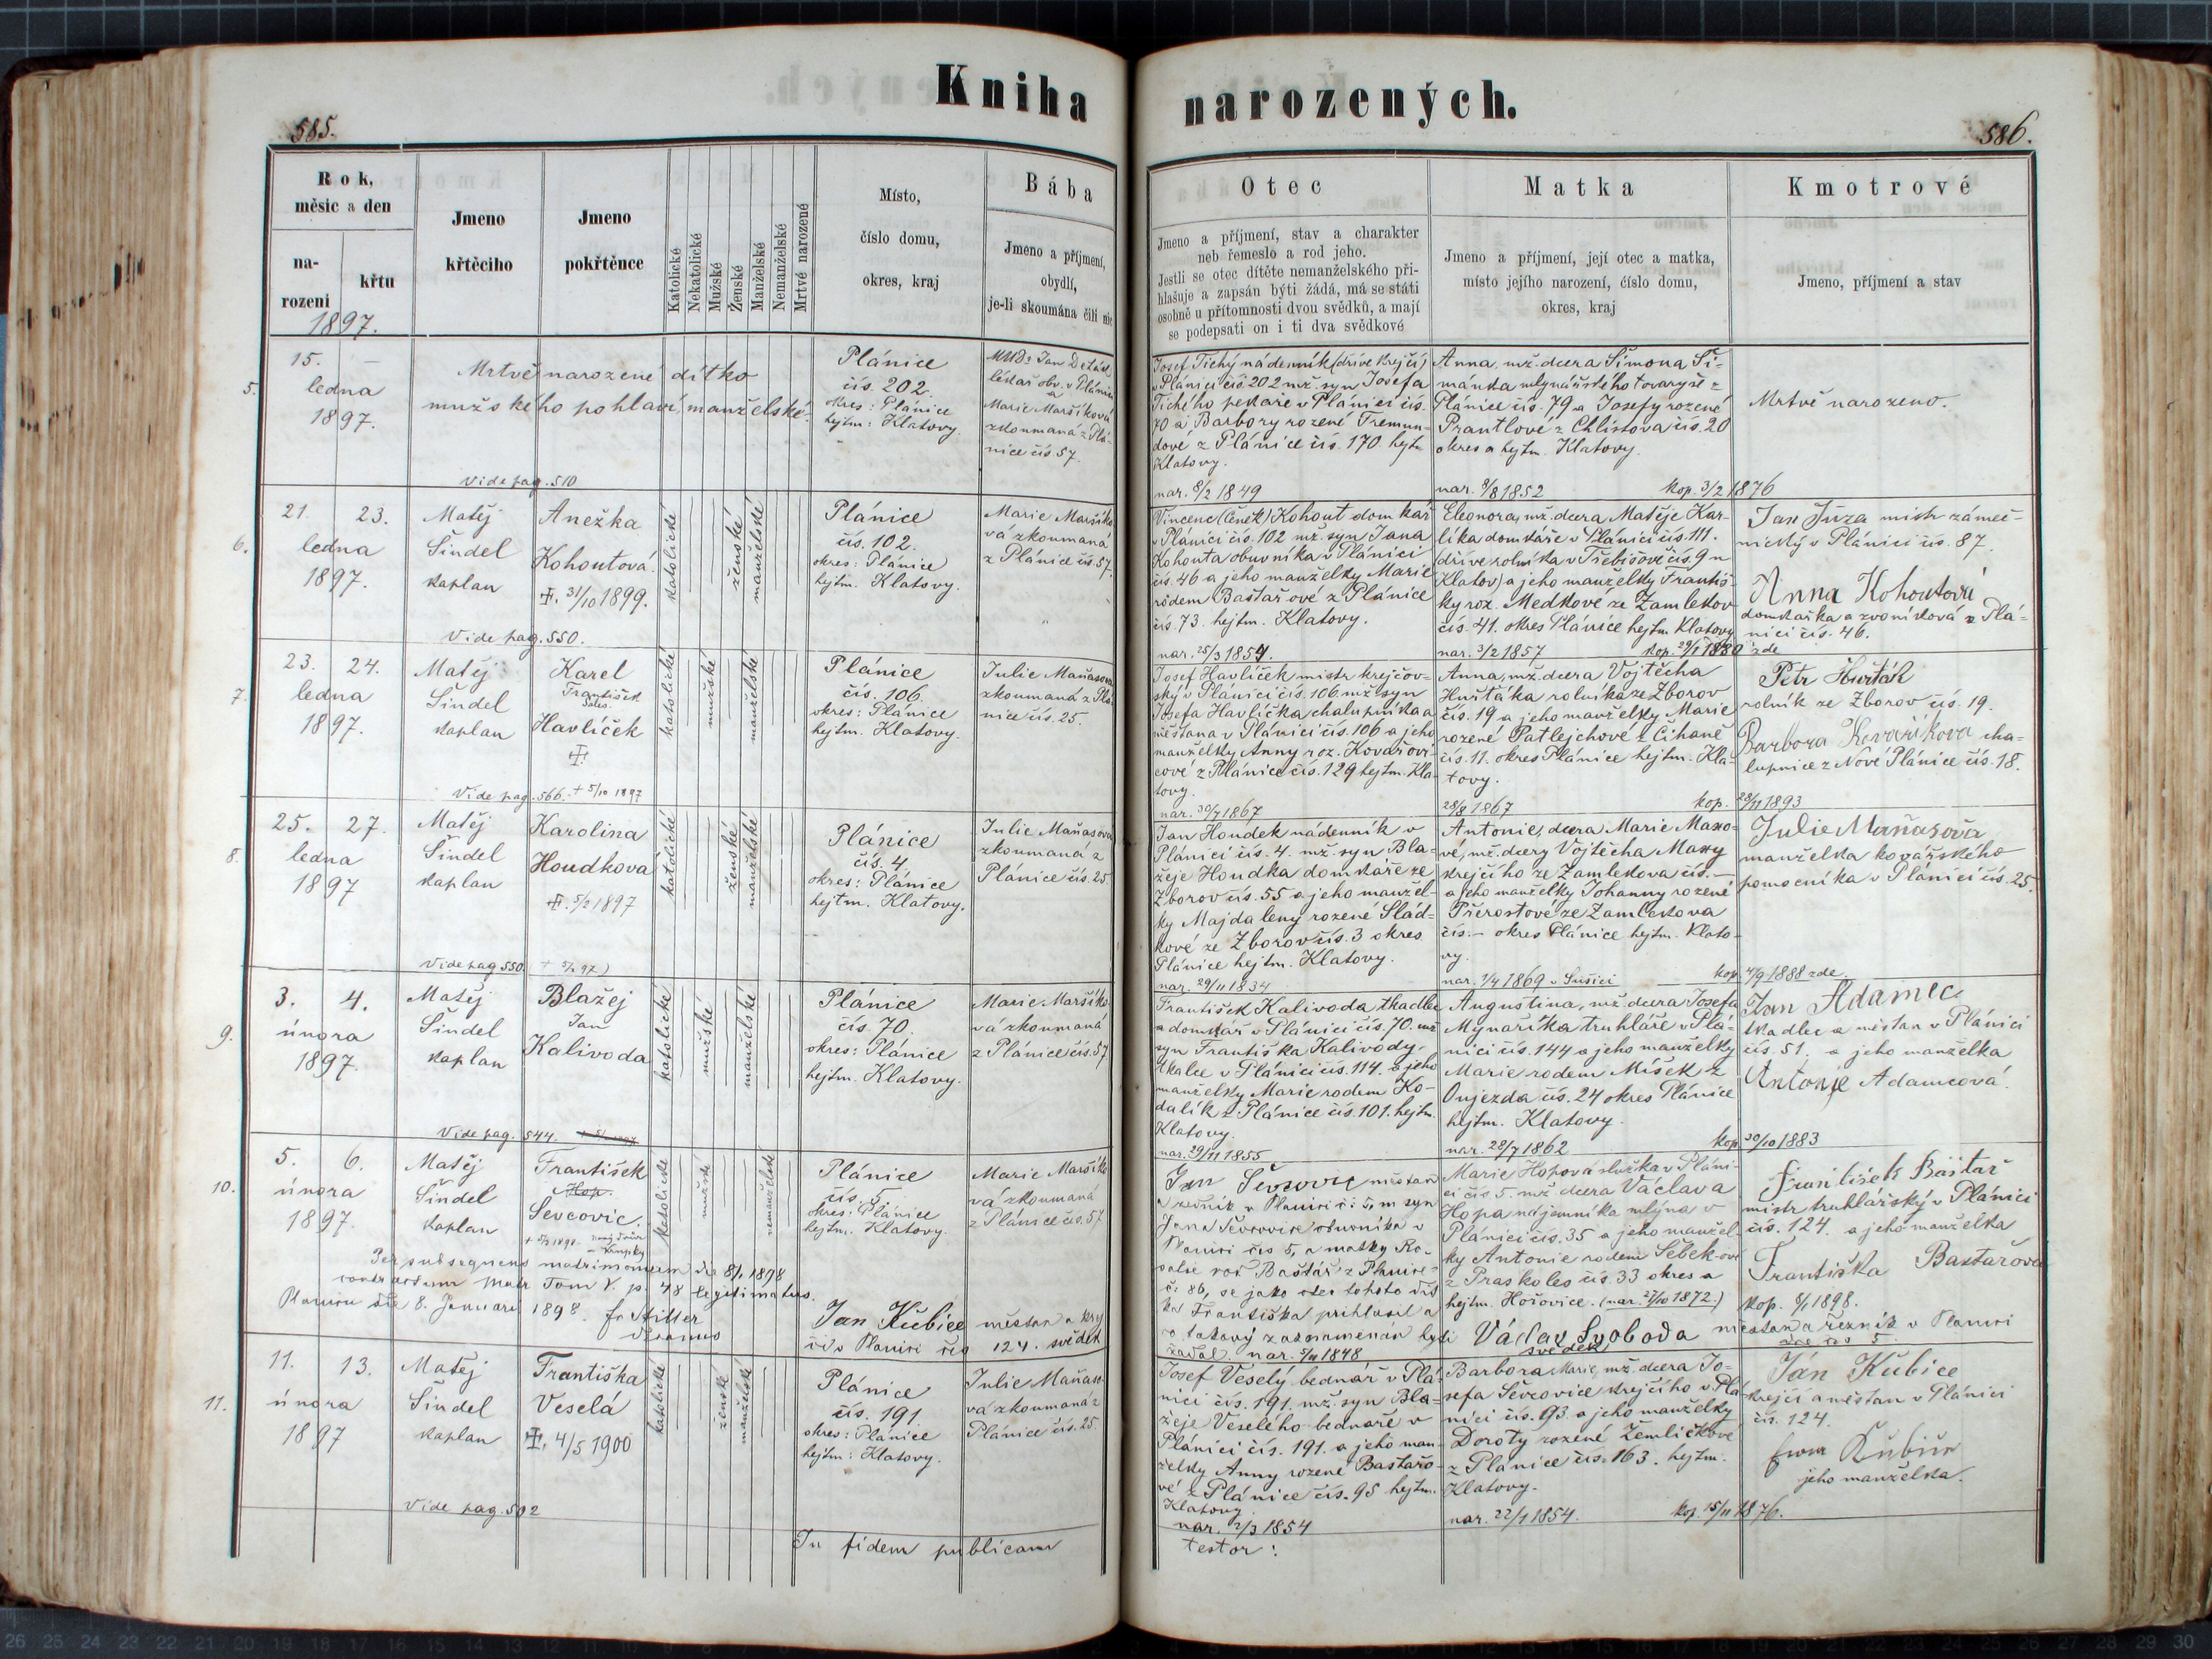 Kniha narozených.
585.
586.
Rok, měsíc a den
narozeni
křtu
1897.
Jmeno křtěcího
Jmeno pokřtěnce
Katolické
Nekatolické
Mužské
Ženské
Manželské
Nemanželské
Mrtvě narozené
Místo, číslo domu, okres, kraj
Bába
Jmeno a příjmení,
obydlí,
je-li skoumána čili nic
Otec
Jmeno a příjmení, stav a charakter
neb řemeslo a rod jeho.
Jestli se otec dítěte nemanželského při-
hlašuje a zapsán býti žádá, má se státi
osobně u přítomnosti dvou svědků, a mají
se podepsati on i ti dva svědkové
Matka
Jmeno a příjmení, její otec a matka,
místo jejího narození, číslo domu,
okres, kraj
Kmotrové
Jmeno, příjmení a stav
5.
15. —
ledna
1897.
Mrtvě narozené dítko
mužského pohlaví, manželské.
vide pag. 510
Plánice
čís. 202.
okres: Plánice
hejtm: Klatovy.
MUDr Jan
lékař obv. v Plánici
a
Marie Maršíková
zkoumaná z Plá-
nice čís 57.
Josef Tichý nádenník (dříve krejčí)
v Plánici čís. 202 mž. syn Josefa
Tichého pekaře v Plánici čís.
70 a Barbory rozené Tremun-
dové z Plánice čís. 170. hejt.
Klatovy.
nar. 8/2 1849
Anna, mž. dcera Šimona Ši-
mánka mlynářského tovaryše z
Plánice čís. 79 a Josefy rozené
Prantlové z Chlistova čís. 20
okres a hejtm. Klatovy.
nar. 8/8 1852 kop. 3/2 1876
Mrtvě narozeno.
6.
21. 23.
ledna
1897.
Matěj
Šindel
kaplan
Anežka
Kohoutová.
31/10 1899.
Vide pag. 550.
katolické
ženské
manželské
Plánice
čís. 102.
okres: Plánice
hejtm. Klatovy.
Marie Maršíko
vá zkoumaná
z Plánice čís. 57.
Vincenc (Čeněk) Kohout domkář
v Plánici čís. 102 mž. syn Jana
Kohouta obuvníka v Plánici
čís. 46 a jeho manželky Marie
rodem Baštařové z Plánice
čís. 73. hejtm. Klatovy.
nar. 25/3 1854.
Eleonora, mž. dcera Matěje Kar-
líka domkáře v Plánici čís. 111.
(dříve rolníka v Třebíšově čís. 9 n
Klatov) a jeho manželky Františ-
ky roz. Medkové ze Zamlekov
čís. 41. okres Plánice hejtm. Klatovy
nar. 3/2 1857 kop. 29/1 1880 zde
Jan Jůza mistr zámeč-
nický v Plánici čís. 87.
Anna Kohoutová
domkařka a zvoníková z Plá-
nici čís. 46.
7.
23. 24.
ledna
1897.
Matěj
Šindel
kaplan
Karel
František
Sales.
Havlíček
Vide pag. 566. + 5/10 1897
katolické
mužské
manželské
Plánice
čís. 106.
okres: Plánice
hejtm. Klatovy.
Julie Maňasova
zkoumaná z Plá-
nice čís. 25.
Josef Havlíček mistr krejčov-
ský v Plánici čís. 106 mž. syn
Josefa Havlíčka chalupníka a
měšťana v Plánici čís. 106 a jeho
manželky Anny roz. Kovářovi-
cové z Plánice čís. 129 hejtm. Kla-
tovy.
nar. 30/7 1867
Anna, mž. dcera Vojtěcha
Huštáka rolníka ze Zborov
čís. 19 a jeho manželky Marie
rozené Patlejchové z Číhaně
čís. 11. okres Plánice hejtm. Kla-
tovy.
28/8 1867 kop. 28/11 1893
Petr Hušták
rolník ze Zborov čís. 19.
Barbora Kovaříkova cha-
lupnice z Nové Plánice čís. 18.
8.
25. 27.
ledna
1897
Matěj
Šindel
kaplan
Karolina
Houdková
5/2 1897
Vide pag 550.
katolické
ženské
manželské
Plánice
čís. 4.
okres: Plánice
hejtm. Klatovy.
Julie Maňasová
zkoumaná z
Plánice čís. 25.
Jan Houdek nádenník v
Plánici čís. 4. mž. syn Bla-
žeje Houdka domkáře ze
Zborov čís. 55 a jeho manžel-
ky Majdaleny rozené Slád-
kové ze Zborov čís. 3 okres
Plánice hejtm. Klatovy.
nar. 29/11 1834
Antonie, dcera Marie Maxo-
vé, mž. dcery Vojtěcha Maxy
krejčího ze Zamlekova čís. —
a jeho manželky Johanny rozené
Přerostové ze Zamlekova
čís. — okres Plánice hejtm. Klato-
vy.
nar. 1/4 1869 v Sušici kop. 4/9 1888 zde.
Julie Maňasova
manželka kovářského
pomocníka v Plánici čís. 25.
9.
3. 4.
února
1897.
Matěj
Šindel
kaplan
Blažej
Jan
Kalivoda
Vide pag. 544.
katolické
mužské
manželské
Plánice
čís. 70.
okres: Plánice
hejtm. Klatovy.
Marie Maršíko-
vá zkoumaná
z Plánice čís. 57
František Kalivoda, tkadlec
a domkář v Plánici čís. 70. mž
syn Františka Kalivody
tkalce v Plánici čís. 114. a jeho
manželky Marie rodem Ko-
dalík z Plánice čís. 101. hejtm.
Klatovy.
nar. 29/11 1855
Augustina, mž. dcera Josefa
Mynaříka truhláře v Plá-
nici čís. 144 a jeho manželky
Marie rodem Míšek z
Oujezda čís. 24 okres Plánice
hejtm. Klatovy.
nar. 28/7 1862 kop. 30/10 1883
Jan Adamec
tkadlec a měšťan v Plánici
čís. 51. a jeho manželka
Antonie Adamcová.
10.
5. 6.
února
1897.
Matěj
Šindel
kaplan
František
Hop.
Ševcovic.
Per subsequens matrimonium die 8/1 1898
contractum Matr Tom V. p. 48 legitimatus.
Planici die 8. Januari 1898.
katolické
mužské
nemanželské
Plánice
čís. 5.
okres: Plánice
hejtm. Klatovy.
Marie Maršíko
vá zkoumaná
z Plánice čís. 57
Jan Kubice měšťan a krej
čí v Planici čís 124. svědek
Jan Ševcovic měšťan
a řezník v Planici č: 5, m syn
Jana Ševcovice obuvníka v
Planici čís 5, a matky Ro-
salie roz. Baštář z Planice
č. 86, se jako otec tohoto dít
ka Františka přihlásil a
co takový zaznamenán býti
žádal nar. 1848
Marie Hopová služka v Pláni-
ci čís. 5. mž. dcera Václava
Hopa nájemníka mlýna v
Plánici čís. 35 a jeho manžel-
ky Antonie rodem Šebekové
z Praskoles čís. 33 okres a
hejtm. Hořovice. (nar. 27/10 1872.)
Václav Svoboda měšťan a řezník v Planici
svědek
František Baštař
mistr truhlářský v Plánici
čís. 124. a jeho manželka
Františka Baštařova
kop. 8/1 1898.
11.
11. 13.
února
1897
Matěj
Šindel
kaplan
Františka
Veselá
4/5 1900
Vide pag. 502
katolické
ženské
manželské
Plánice
čís. 191.
okres: Plánice
hejtm: Klatovy.
Julie Maňaso-
vá zkoumaná z
Plánice čís. 25.
Josef Veselý bednář v Plá-
nici čís. 191. mž. syn Bla-
žeje Veselého bednáře v
Plánici čís. 191. a jeho man-
želky Anny rozené Baštařo-
vé z Plánice čís. 95 hejtm.
Klatovy.
nar. 2/3 1854
Barbora Marie, mž. dcera Jo-
sefa Ševcovice krejčího v Plá-
nici čís. 93. a jeho manželky
Doroty rozené Žemličkové
z Plánice čís. 163. hejtm.
Klatovy.
nar. 22/1 1854. kop. 15/11 1876.
Jan Kubice
krejčí a měšťan v Plánici
čís. 124.
jeho manželka.
In fidem publicam
testor: